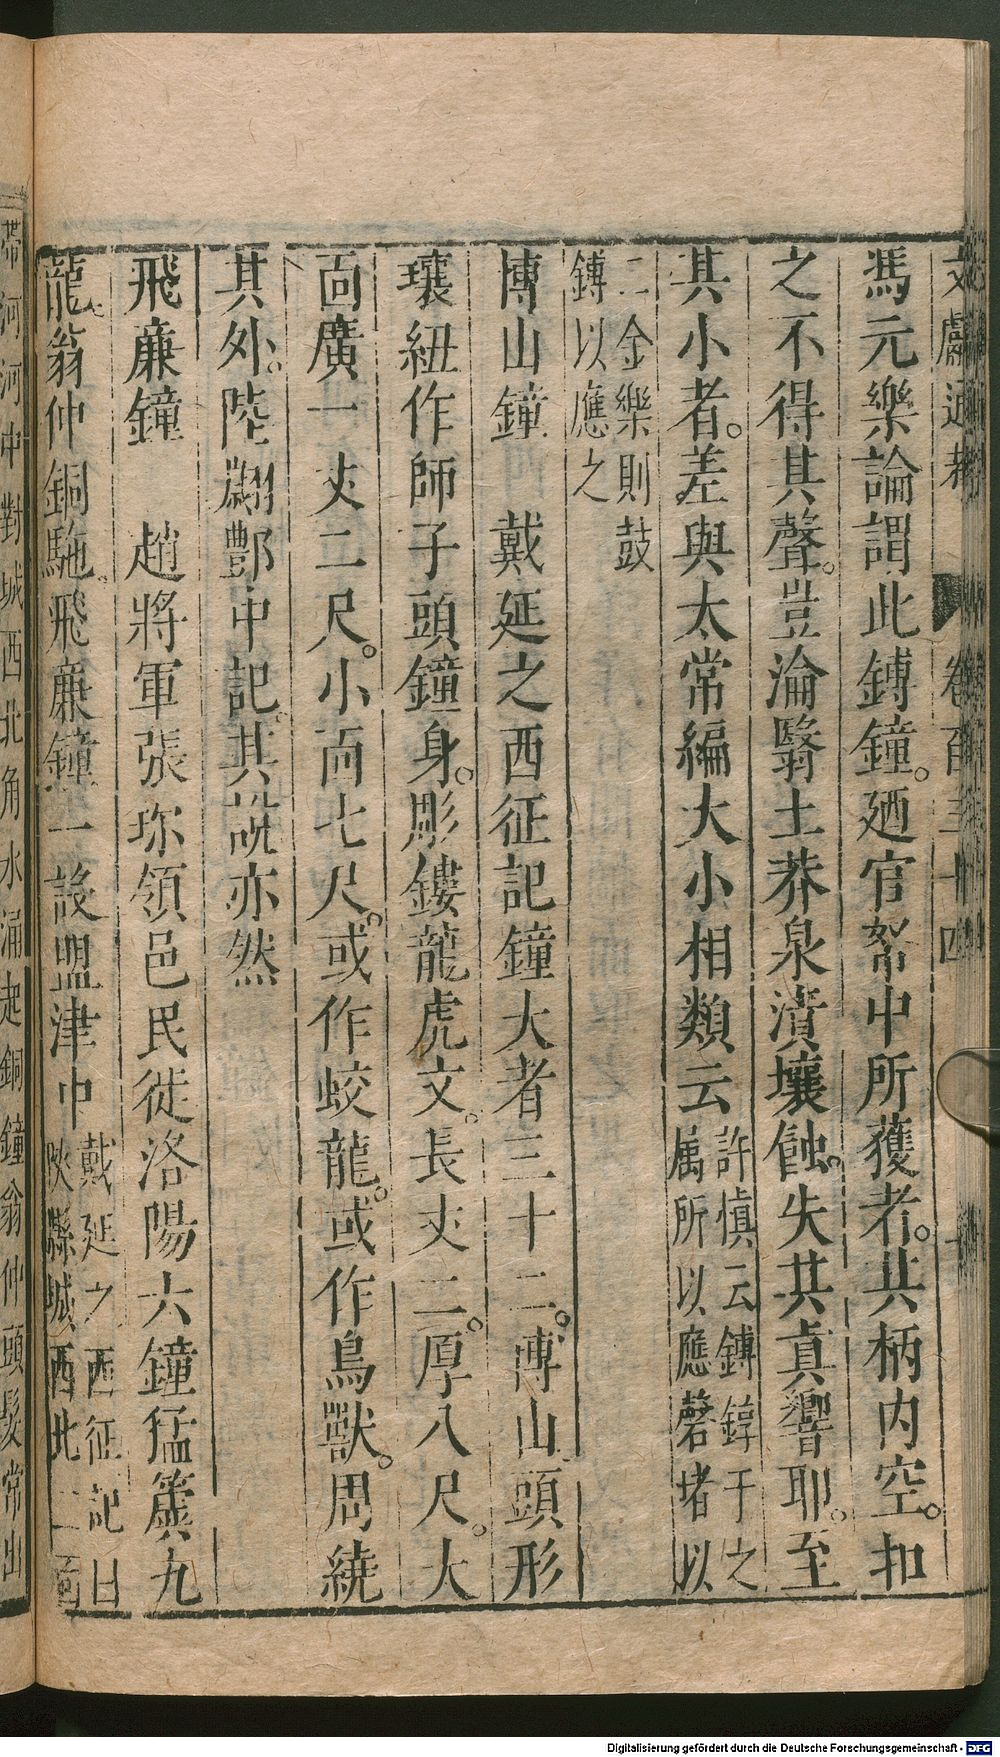 文獻通考 卷百三十四
馮元樂論謂此鎛鐘。廼官帑中所獲者。其柄内空。扣
之不得其聲。豈淪翳土莽泉漬壤蝕。失其真響耶。至
其小者。差與太常編大小相類云許慎云鎛錞于之
屬所以應磬堵以
二金樂則鼓
鎛以應之
博山鐘 戴延之西征記鐘大者三十二。博山頭形
瓖紐作師子頭鐘身。彫鏤龍虎文。長丈二。厚八尺。大
面廣一丈二尺。小面七尺。或作蛟龍。或作鳥獸。周繞
其外。陸翽鄴中記。其説亦然
飛廉鐘 趙將軍張珎領邑民徙洛陽六鐘猛簴九
龍翁仲銅駞。飛廉鐘一設盟津中戴延之西征記曰
陜縣城西北二面
帶河河中對城西北角水涌起銅鐘翁仲頭髮常出
Digitalisierung gefördert durch die Deutsche Forschungsgemeinschaft - DFG